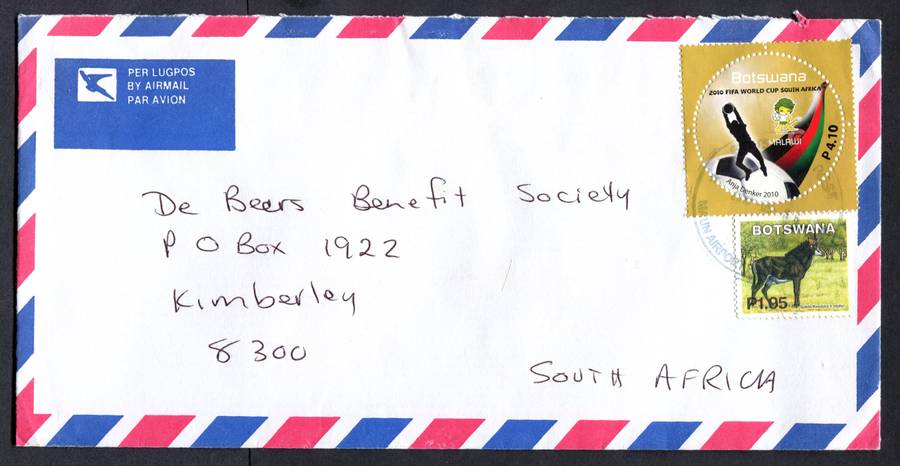 PER LUGPOS
BY AIRMAIL
PAR AVION
Botswana
2010 FIFA WORLD CUP SOUTH AFRICA
MALAWI
P4.10
Anja Denker 2010
BOTSWANA
P1.95
MAUN AIRPORT
De Beers Benefit Society
P O Box 1922
Kimberley
8300
SOUTH AFRICA